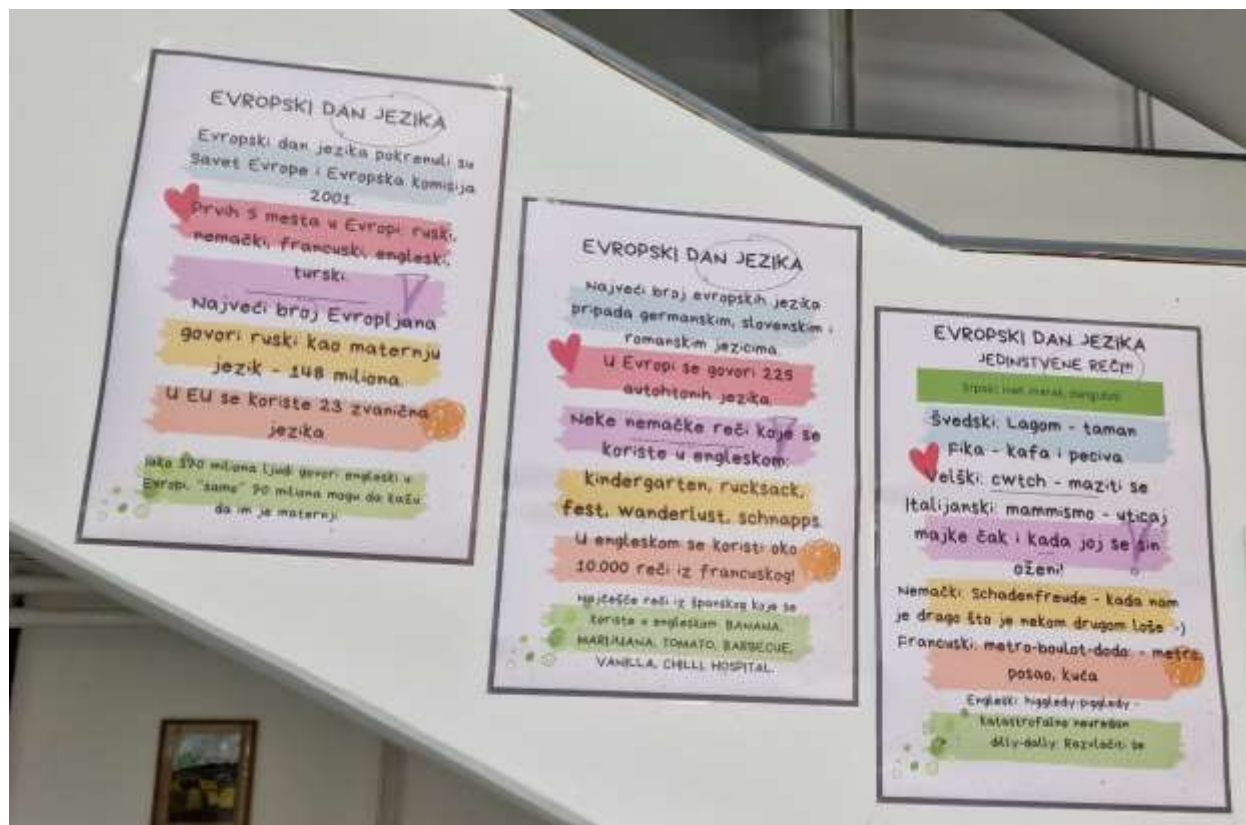 EVROPSKI DAN JEZIKA
Evropski dan jezika pokrenuli su
Savet Evrope i Evropska komisija
2001.
Prvih 5 mesta u Evropi: ruski,
nemački, francuski, engleski,
turski.
Najveći broj Evropljana
govori ruski kao maternju
jezik - 148 miliona.
U EU se koriste 23 zvanična
jezika
Iako 590 miliona ljudi govori engleski u
Evropi, "samo" 90 miliona mogu da kažu
da im je maternji.
EVROPSKI DAN JEZIKA
Najveći broj evropskih jezika
pripada germanskim, slovenskim i
romanskim jezicima.
U Evropi se govori 225
autohtonih jezika.
Neke nemačke reči koje se
koriste u engleskom:
kindergarten, rucksack,
fest, wanderlust, schnapps.
U engleskom se koristi oko
10.000 reči iz francuskog!
Najčešće reči iz španskog koje se
koriste u engleskom: BANANA,
MARIJUANA, TOMATO, BARBECUE,
VANILLA, CHILLI, HOSPITAL.
EVROPSKI DAN JEZIKA
JEDINSTVENE REČI!!!
Srpski: inat, merak,
Švedski: Lagom - taman
Fika - kafa i peciva
Velški: cwtch - maziti se
Italijanski: mammismo - uticaj
majke čak i kada joj se sin
oženi!
Nemački: Schadenfreude - kada nam
je drago što je nekom drugom loše :-)
Francuski: metro-boulot-dodo: - metro,
posao, kuća
Engleski: higgledy-piggledy -
katastrofalno neuredan
dilly-dally: Razvlačiti se